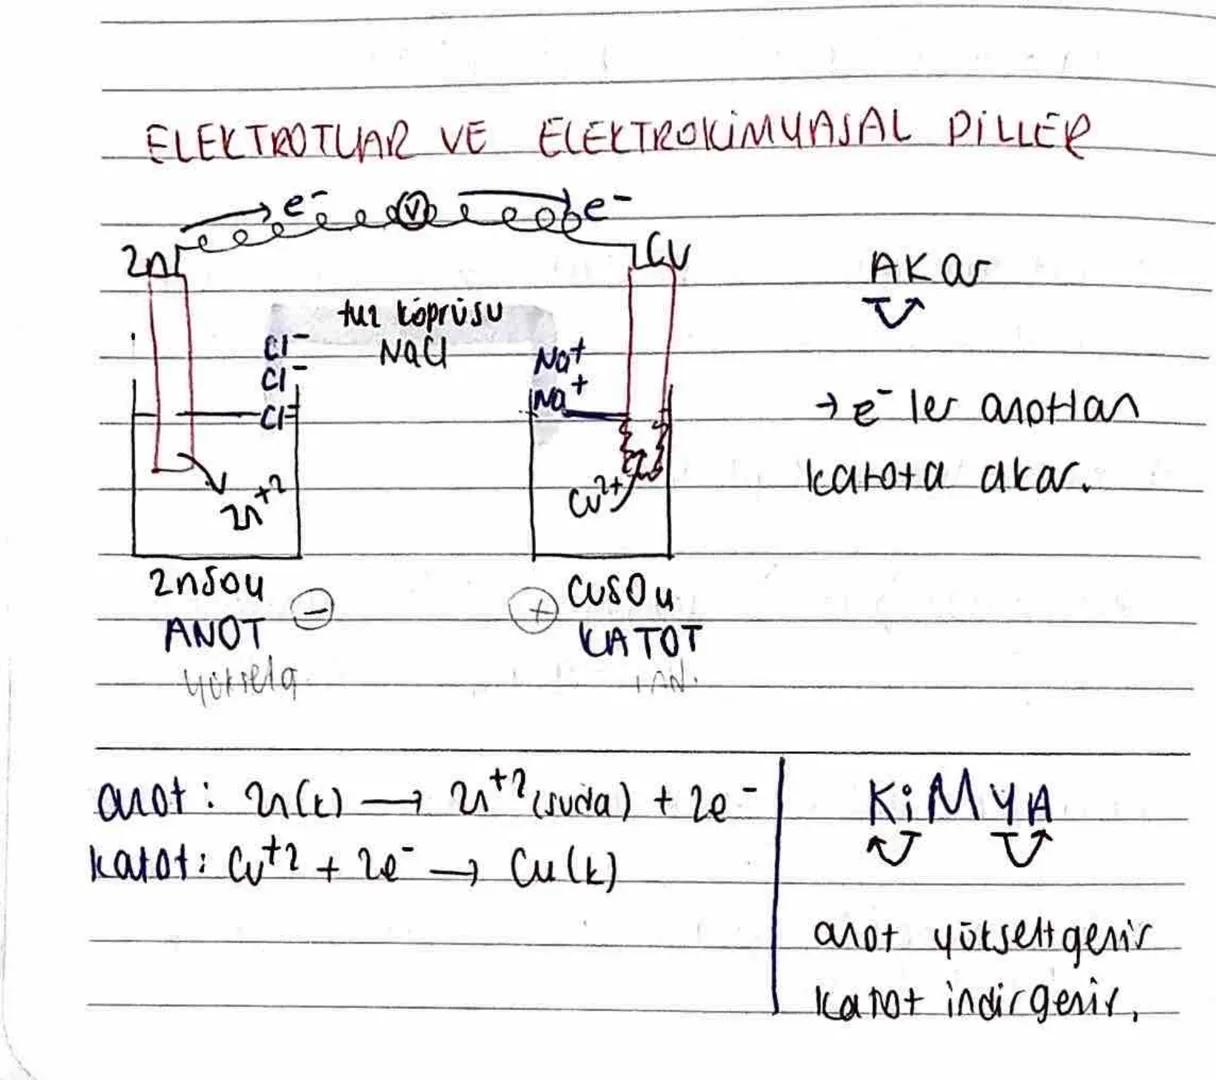 ELEKTROTLAR VE ELEKTROKİMYASAL PİLLER
e⁻ V e⁻
Zn Cu
AKar
tuz köprüsü
NaCl
Cl⁻
Cl⁻
Cl⁻
Na⁺
Na⁺
→ e⁻ ler anottan
katota akar.
Zn⁺²
Cu²⁺
ZnSO4
ANOT
−
yükseltg
+
CuSO4
KATOT
anot: Zn(k) → Zn⁺² (suda) + 2e⁻
katot: Cu⁺² + 2e⁻ → Cu(k)
KİMYA
anot yükseltgenir
katot indirgenir.